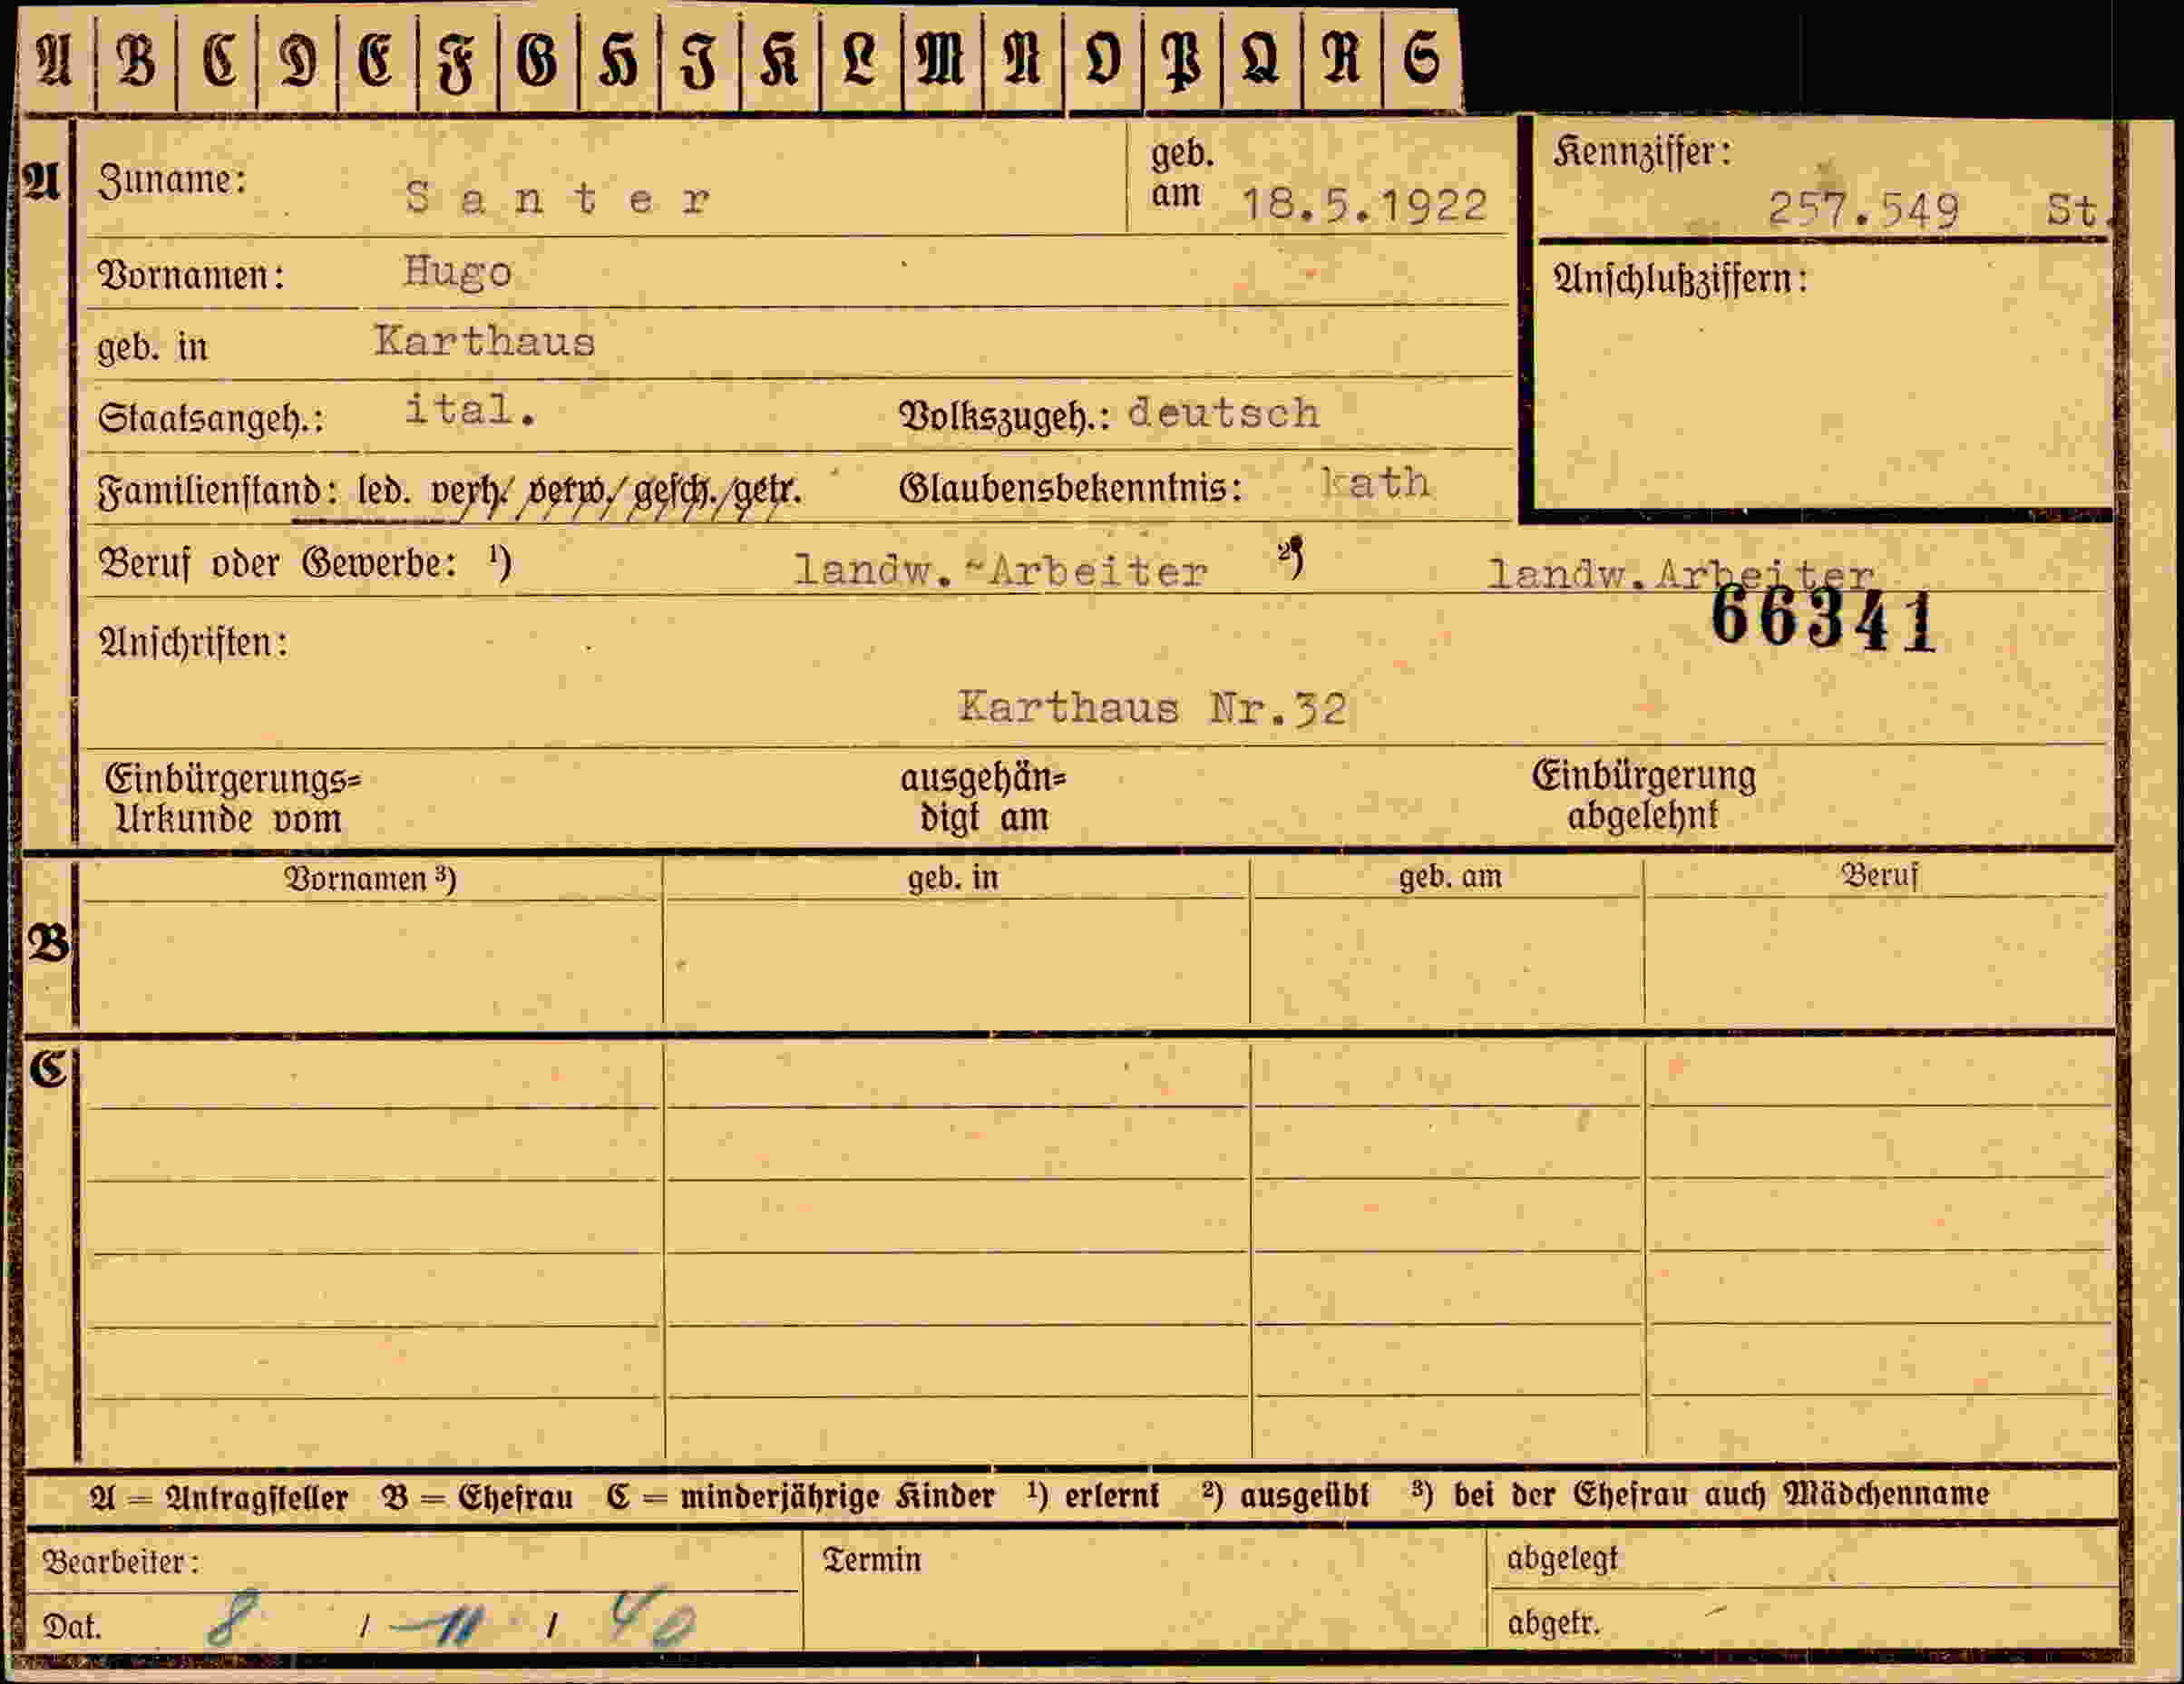 A B C D E F G H I K L M N O P Q R S
A Zuname: Santer geb. am 18.5.1922 Kennziffer: 257.549 St.
Vornamen: Hugo Anschlußziffern:
geb. in Karthaus
Staatsangeh.: ital. Volkszugeh.: deutsch
Familienstand: led. verh./ verw./ gesch./getr. Glaubensbekenntnis: kath
Beruf oder Gewerbe: ¹) landw.-Arbeiter ²) landw.Arbeiter
66341
Anschriften:
Karthaus Nr.32
Einbürgerungs= ausgehän= Einbürgerung
Urkunde vom digt am abgelehnt
Vornamen ³) geb. in geb. am Beruf
B
C
A = Antragsteller B = Ehefrau C = minderjährige Kinder ¹) erlernt ²) ausgeübt ³) bei der Ehefrau auch Mädchenname
Bearbeiter: Termin abgelegt
Dat. 8 / 11 / 40 abgetr.